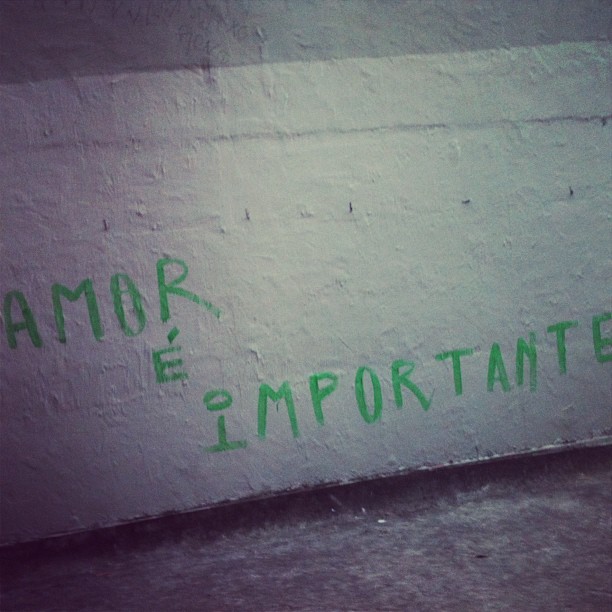 AMOR
É
iMPORTANTE